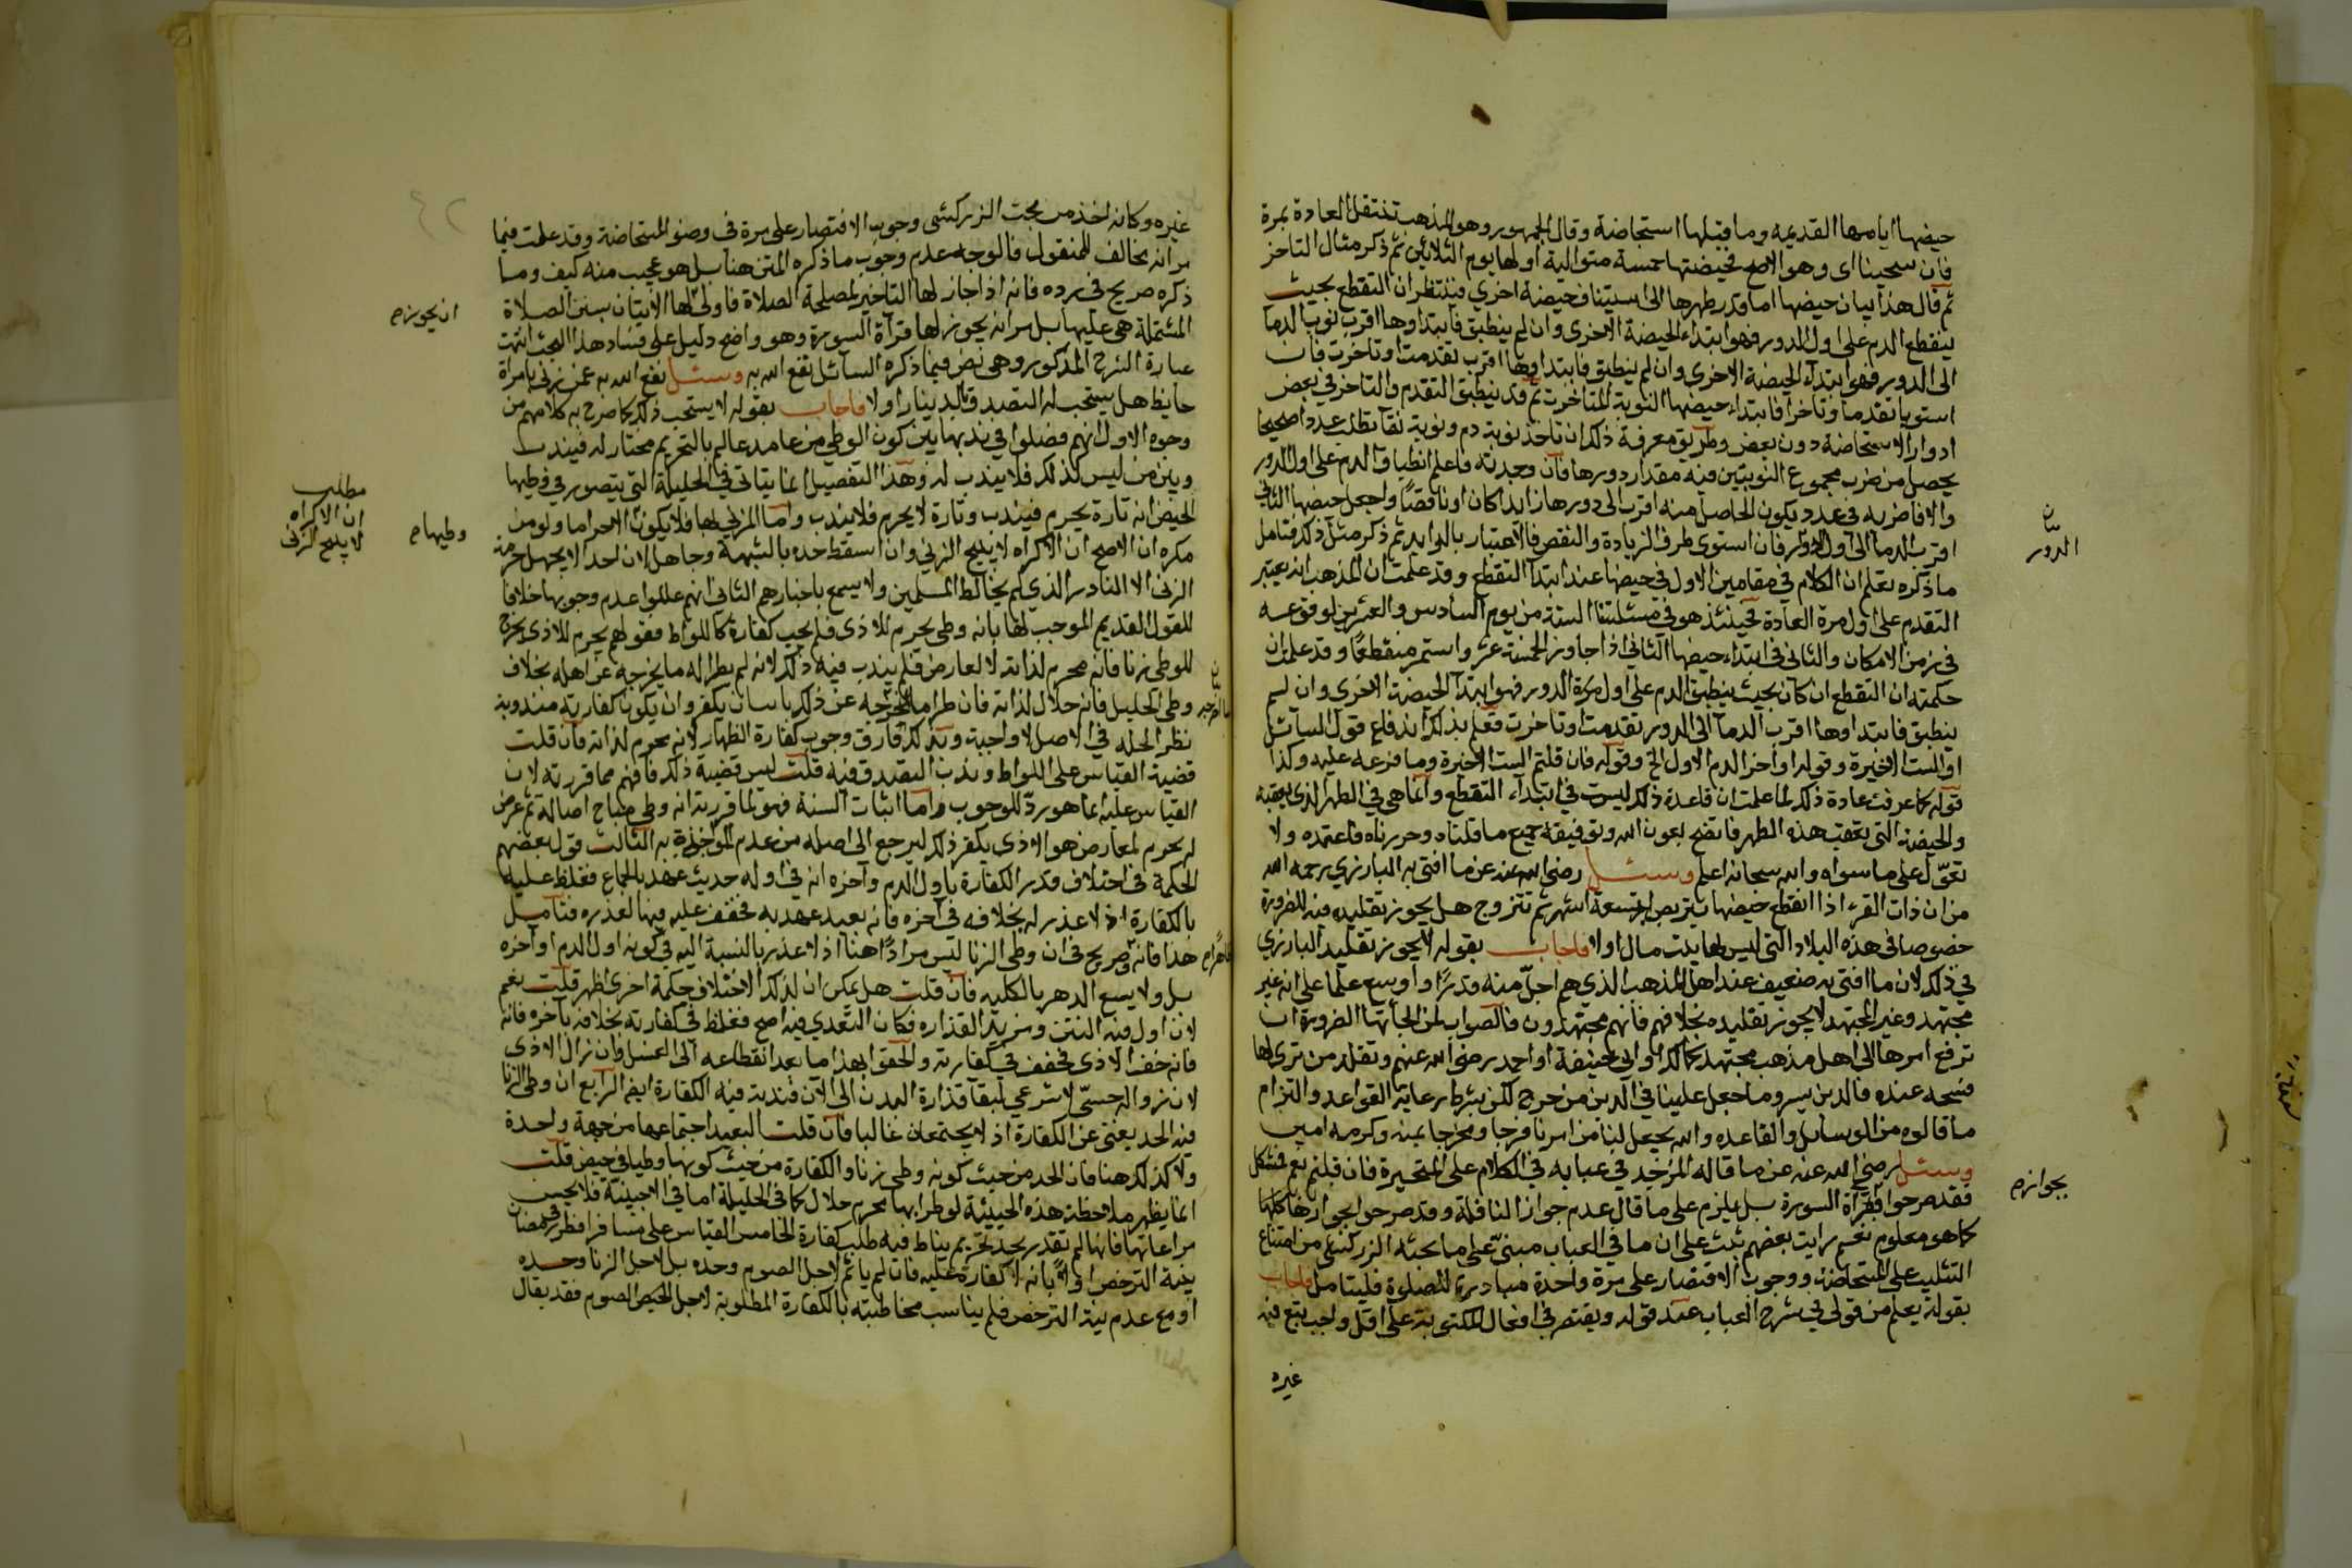 حيضها ايامها القديمه وما قبلها استحاضة وقال الجمهور وهو المذهب تنتقل العادة بمرة
فان سحبنا اى وهو الاصح فحيضتها خمسة متوالية اولها يوم الثلاثين ثم ذكر مثال التاخر
ثم قال هذا بيان حيضها اما قدر طهرها الى استينافحيضة اخري فننتظر ان التقطع بحيث
ينقطع الدم على اول الدور فهو ابتداء الحيضة الاخرى وان لم ينطبق فابتداوها اقرب نوب الدما
الى الدور فهو ابتداء الحيضة الاخرى وان لم ينطبق فابتداوها اقرب تقدمت او تاخرت فان
استويا تقدما وتاخرا فابتداء حيضها النوبة المتاخرت ثم قد ينطبق التقدم والتاخر في بعض
ادوار الاستحاضة دون بعض وطريق معرفة ذلك ان تاخذ نوبة دم ونوبة نقا تطلب عددا صحيحا
يحصل من ضرب مجموع النوبتين فيه مقدار دورها فان وجدته فاعلم انطباق الدم على اول الدور
والا فاضربه في عدد يكون الحاصل منه اقرب الى دورها زايدا كان او ناقصا واجعل حيضها الثاني
اقرب الدما الى اول الدور فان استوى طرف الزيادة والنقص فالاعتبار بالزايد ثم ذكر مثل ذلك فتامل
ما ذكره تعلم ان الكلام في مقامين الاول في حيضها عند ابتدا التقطع وقد علمت ان المذهب انه يعتبر
التقدم على اول مرة العادة فحينئذ هو في مسئلتنا الستة من يوم السادس والعشرين لوقوعه
في زمن الامكان والثاني في ابتداء حيضها الثاني اذا جاوز الخمسة عشر واستمر متقطعا وقد علمت ان
حكمته ان التقطع ان كان بحيث ينطبق الدم على اول مرة الدور فهو ابتدا الحيضة الاخرى وان لم
ينطبق فابتداوها اقرب الدما الى الدور تقدمت او تاخرت فعلم بذلك اندفاع قول السائل
او الست الاخيرة وقوله او اخر الدم الاول الخ وقوله فان قلتم الست الاخيرة وما فرعه عليه وكذا
قوله كما عرفت عادة ذلك لما علمت ان قاعدة ذلك ليست في ابتداء التقطع وانما هي في الطهر الذي يعقبه
والحيضة التي تعقب هذه الطهر فاتضح بعون الله وتوفيقه جميع ما قلناه وحررناه فاعتمده ولا
تعوّل على ما سواه والله سبحانه اعلم وسئل رضى الله عنه عن ما افتى به البارزي رحمه الله
من ان ذات القرء اذا انقطع حيضها تتربص تسعة اشهر ثم تتزوج هل يجوز تقليده فيه للضرورة
خصوصا في هذه البلاد التي ليس لها بيت مال او لا فاجاب بقوله لا يجوز تقليد البارزي
في ذلك لان ما افتى به ضعيف عند اهل المذهب الذي هم اجلّ منه قدرًا واوسع علما على انه غير
مجتهد وغير المجتهد لا يجوز تقليده بخلافهم فانهم مجتهدون فالصواب لمن الجأتها الضرورة ان
ترفع امرها الى اهل مذهب مجتهد كمالك او ابى حنيفة او احمد رضى الله عنهم وتقلد من ترى لها
فسحه عنده فالدين يسر وما جعل علينا في الدين من حرج لكن بشرط رعاية القواعد والتزام
ما قالوه من الوسايل والقاعده والله يجعل لنا من امرنا فرجا ومخرجا بمنه وكرمه امين
وسئل رضى الله عنه عن ما قاله المزجد في عبابه في الكلام على المتحيرة فان قلتم نعم فمشكل
فقد صرحوا بقرأة السورة بل يلزم على ما قال عدم جواز النافلة وقد صرحوا بجوازها كلها
كما هو معلوم نعم رايت بعضهم نبّه على ان ما في العباب مبنىّ على ما بحثه الزركشى من امتناع
التثليث على المستحاضة ووجوب الاقتصار على مرة واحدة مبادرة للصلوة فليتامل فاجاب
بقوله يعلم من قولي في شرح العباب عند قوله ويقتصر في افعال المكتوبة على اقل واجب يتبع فيه
غيره
بيان
الدور
بجوازم
غيره وكانه اخذ من بحث الزركشى وجوب الاقتصار على مرة في وضوء المستحاضة وقد علمت فيما
مر انه مخالف للمنقول فالوجه عدم وجوب ما ذكره المتن هنا بل هو عجيب منه كيف وما
ذكره صريح في رده فانه اذا جاز لها التاخير لمصلحة الصلاة فاولى لها الاتيان بسنن الصلاة
المشتملة هى عليها بل مر انه يجوز لها قرآة السورة وهو واضح دليل على فساد هذا البحث انتهت
عبارة الشرح المذكور وهى نص فيما ذكره السائل نفع الله به وسئل نفع الله به عمن زنى بامراة
حايظ هل يستحب له التصدق بالدينار او لا فاجاب بقوله لا يستحب ذلك كما صرح به كلامهم من
وجوه الاول انهم فصلوا في ندبها بين كون الوطي من عامد عالم بالتحريم مختار له فيندب
وبين من ليس كذلك فلا يندب له وهذا التفصيل انما يتاتى في الحليلة التي يتصور في وطيها
الحيض انه تارة يحرم فيندب وتارة لا يحرم فلا يندب واما المزنى بها فلا يكون الا حراما ولو من
مكره ان الاصح ان الاكراه لا يبيح الزنى وان اسقط حده بالشبهة وجاهل لان احدا لا يجهل حرمة
الزنى الا النادر الذي لم يخالط المسلمين ولا يسمع باخبارهم الثانى انهم عللوا عدم وجوبها خلافا
للقول القديم الموجب لها بانه وطى يحرم للاذى فلم يجب كفارة كاللواط فقولهم يحرم للاذى يخرج
للوطى زنا فانه محرم لذاته لا لعارض فلم يندب فيه ذلك لانه لم يطرا له ما يخرجه عن اهله بخلاف
وطى الحليل فانه حلال لذاته فان طرا ما يخرجه عن ذلك ناسب ان يكفر وان يكون كفارته مندوبة
نظر الحله في الاصل لا واجبة وبذلك فارق وجوب كفارة الظهار لانه محرم لذاته فان قلت
قضية القياس على اللواط وندب التصدق فيه قلت ليس قضية ذلك فافهم مما قررته لان
القياس عليه انما هو رد للوجوب واما اثبات السنة فهو لما قررته انه وطى مباح اصالة ثم عرض
له محرم لمعارض هو الاذى يكفر ذلك ليرجع الى اصله من عدم المواخذة به الثالث قول بعضهم
الحكمة في اختلاف قدر الكفارة باول الدم وآخره انه في اوله حديث عهد بالجماع فغلظ عليه
بالكفارة اذ لا عذر له بخلافه في اخره فانه بعيد عهد به فخفف عليه فيها لعذره فتامل
هذا فانه صريح في ان وطى الزنا ليس مرادًا هنا اذ لا عذر بالنسبة اليه في كونه اول الدم او آخره
بل ولا يسع الدهر بالكليه فان قلت هل يمكن ان لذلك الاختلاف حكمة اخرى اظهر قلت نعم
لان اول فيه النتن ومزيد القذاره فكان التعدي فيه اصح فغلظ في كفارته بخلافه بآخره فانه
فانه خف الاذى فخفف في كفارته والحقوا بهذا ما بعد انقطاعه الى الغسل فان زال الاذى
لان زواله حسّى لا شرعي لبقا قذارة البدن الى الآن فندبت فيه الكفارة ايضا الرابع ان وطى الزنا
فيه الحد يغنى عن الكفارة اذ لا يجتمعان غالبا فان قلت البعيد اجتماعهما من جهة واحدة
ولا كذلك هنا فان الحد من حيث كونه وطى زنا والكفارة من حيث كونها وطيا في حيض قلت
انما يظهر ملاحظة هذه الحيثية لو طرا بها محرم حلال كما في الحليلة اما في الاجنبية فلا يحسن
مراعاتها فانها لم تقدر بحد تحريم يناط فيه طلب كفارة الخامس القياس على مسافر افطر في رمضان
بنية الترخص او لا بانه لا كفارة عليه فانه لم ياثم لاجل الصوم وحده بل لاجل الزنا وحده
او مع عدم نية الترخص فلم يناسب مخاطبته بالكفارة المطلوبة لاجل الحيض الصوم فقد يقال
ان يجوزم
مطلب
ان الاكراه
لا يبيح الزنى
وطيهام